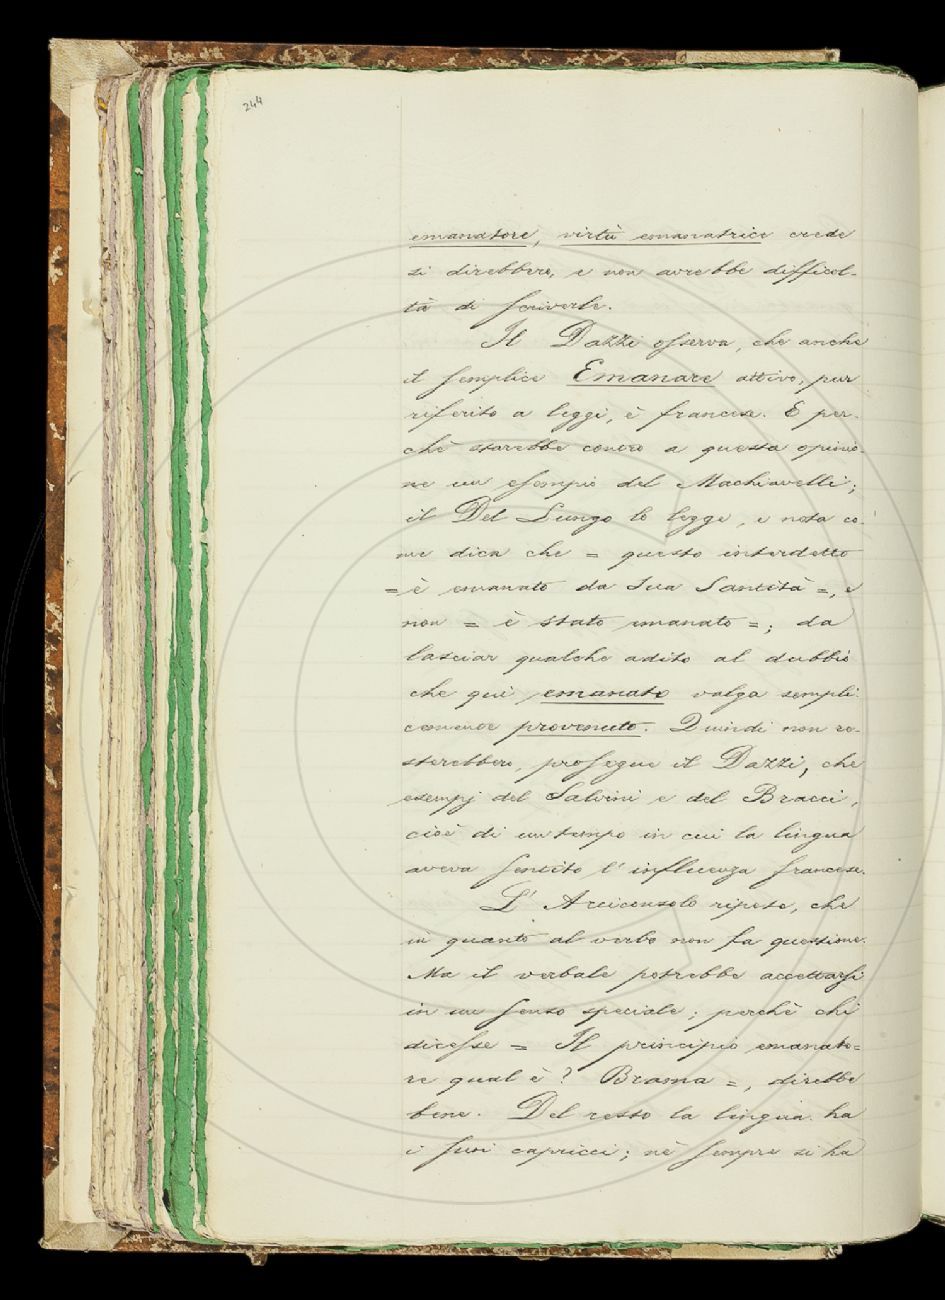 244
emanatore, virtù emanatrice crede
si direbbero, e non avrebbe difficol-
tà di scriverle.
Il Dazzi osserva, che anche
il semplice Emanare attivo, pur
riferito a leggi, è francese. E per-
chè starebbe contro a questa opinio-
ne un esempio del Machiavelli;
il Del Lungo lo legge, e nota co-
me dica che = questo interdetto
= è emanato da Sua Santità =, e
non = è stato emanato =; da
lasciar qualche adito al dubbio
che qui emanato valga sempli-
cemente provenuto. Quindi non re-
sterebbero, prosegue il Dazzi, che
esempj del Salvini e del Bracci,
cioè di un tempo in cui la lingua
aveva sentito l'influenza francese.
L'Arciconsolo ripete, che
in quanto al verbo non fa questione.
Ma il verbale potrebbe accettarsi
in un senso speciale; perchè chi
dicesse = Il principio emanato=
re qual è? Brama =, direbbe
bene. Del resto la lingua ha
i suoi capricci; nè sempre si ha